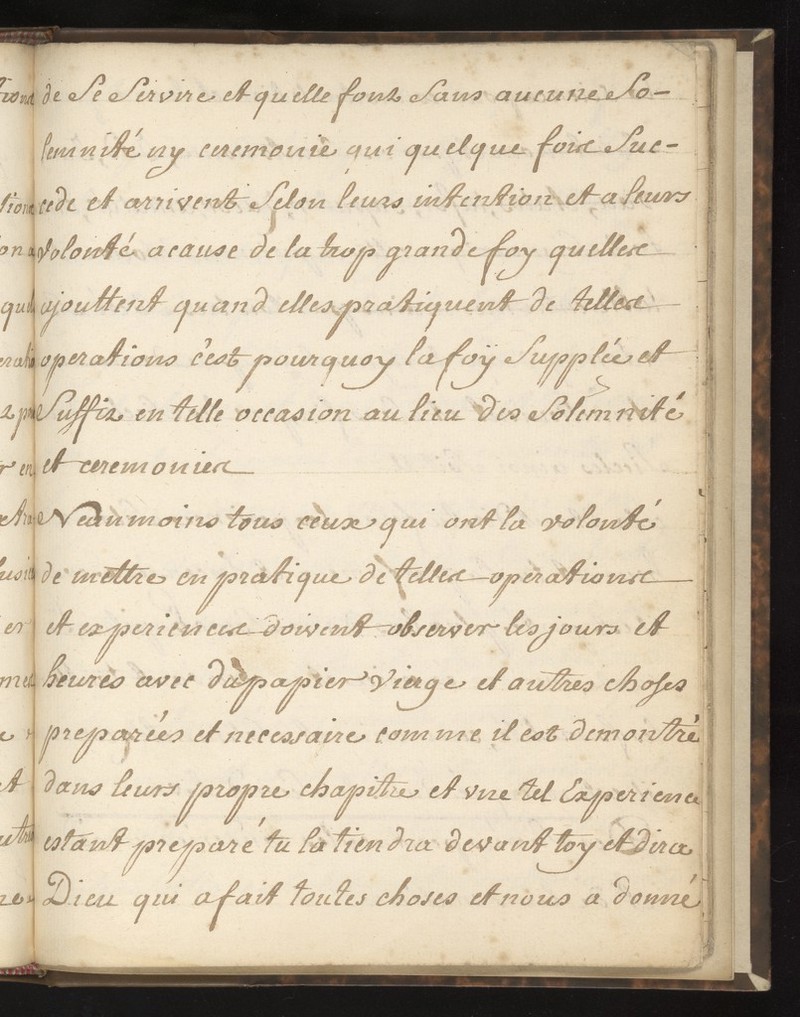 de Se Servire et quelle font Sans aucune So-
lemnité ny ceremonie qui quelque foix Suc-
cede et arrivent Selon leurs intention et a leurs
Volonté acause de la trop grande foy quelles
ajouttent quand elles pratiquent de telles
operations c'est pourquoy la foÿ Supplée et
Suffiz en telle occasion au lieu des Solemnité
et ceremonies
Neanmoins tous ceux qui ont la volonté
de mettre en pratique de telles operations
et experiences doivent observer les jours et
heures avec du papier Vierge et autres choses
preparées et necessaire comme il est demontré
dans leurs propre chapitre et vne tel Experience
estant preparé tu la tiendra devant toy et dira
Dieu qui a fait toutes choses et nous a donné